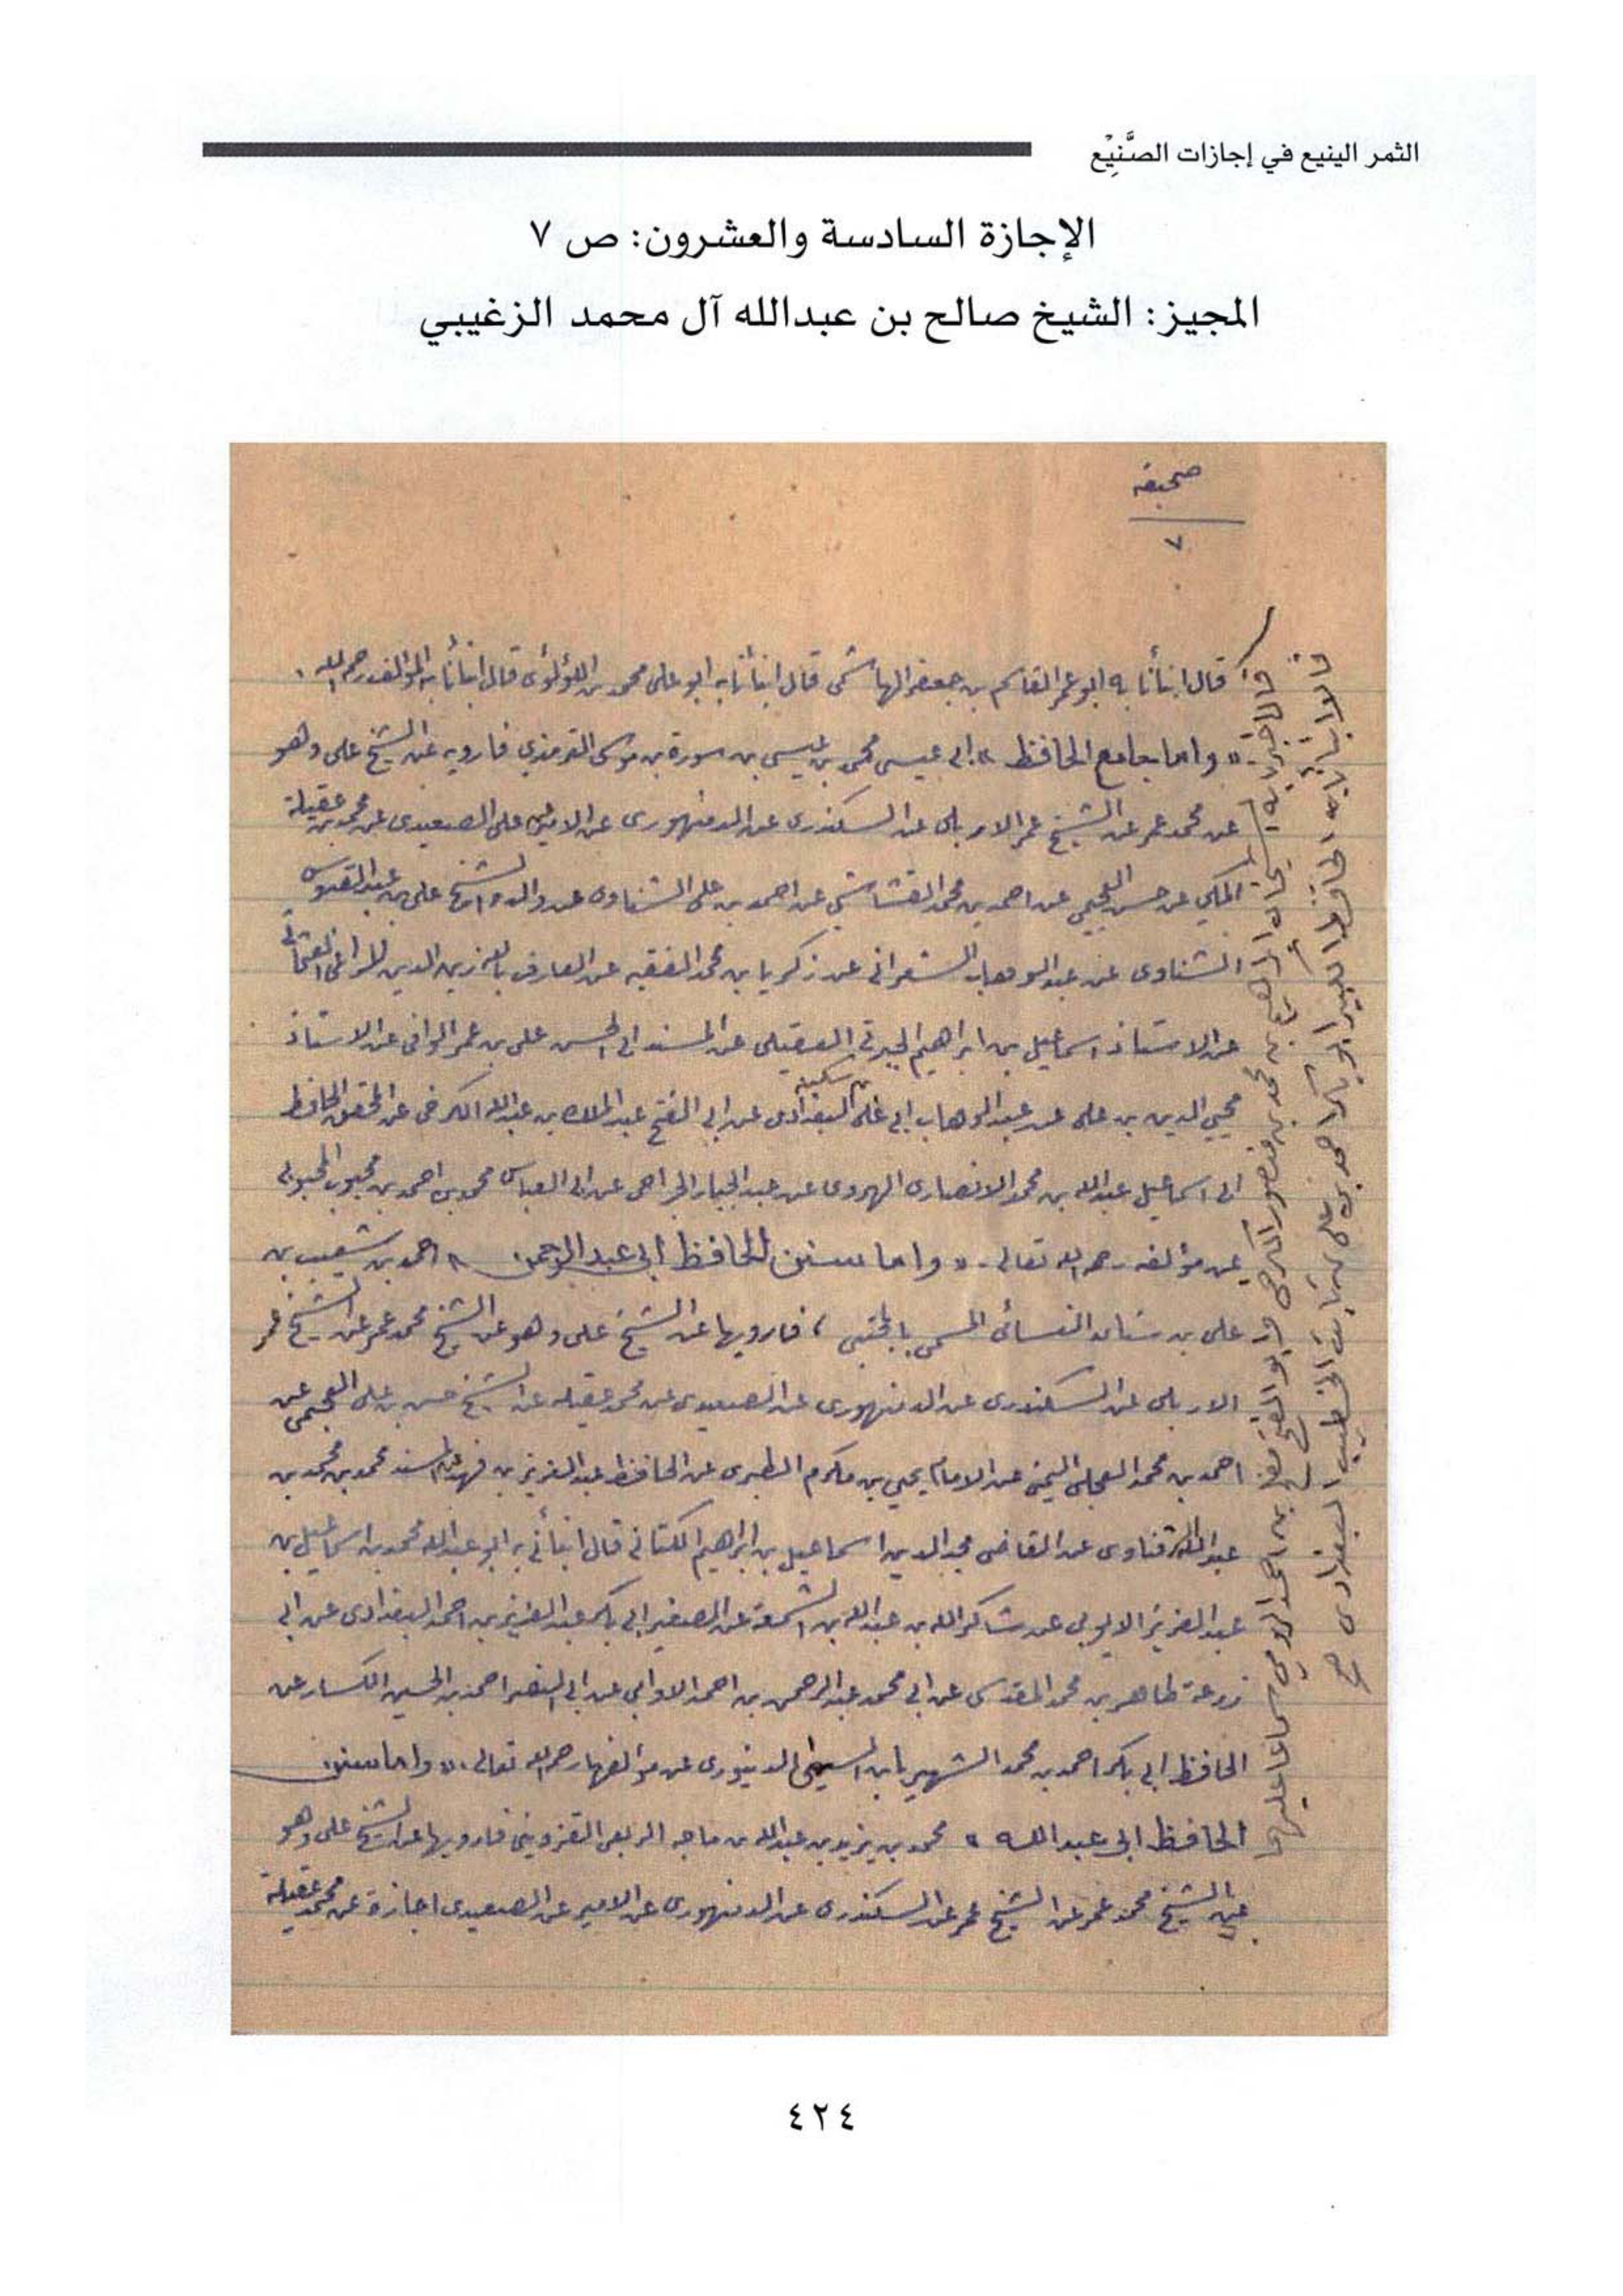 الثمر الينيع في إجازات الصَّنِيْع
الإجازة السادسة والعشرون: ص ٧
المجيز: الشيخ صالح بن عبدالله آل محمد الزغيبي
صحيفة
٧
قال انبأنا به ابو عمر القاسم بن جعفر الهاشمي قال انبأنا به ابو علي محمد بن اللؤلؤي قال انبأنا به المؤلف رحمه الله .
« واما جامع الحافظ » ابي عيسى محمد بن عيسى بن سورة بن موسى الترمذي فارويه عن الشيخ علي وهو
عن محمد عمر عن الشيخ عمر الاربلي عن السكندري عن الدمنهوري عن الامير عن علي الصعيدي عن محمد بن عقيلة
المكي عن حسن العجيمي عن احمد بن محمد القشاشي عن احمد بن علي الشناوي عن والده الشيخ علي بن عبد القدوس
الشناوي عن عبد الوهاب الشعراني عن زكريا بن محمد الفقيه عن العارف بالله زين الدين المراغي العثماني
عن الاستاذ اسماعيل بن ابراهيم الجبرتي العقيلي عن المسند ابي الحسن علي بن عمر الواني عن الاستاذ
محيي الدين بن علي عن عبد الوهاب ابي علي بن سكينه البغدادي عن ابي الفتح عبد الملك بن عبد الله الكرخي عن المحقق الحافظ
ابي اسماعيل عبد الله بن محمد الانصاري الهروي عن عبد الجبار الجراحي عن ابي العباس محمد بن احمد بن محبوب المحبوبي
عن مؤلفه رحمه الله تعالى . « واما سنن الحافظ ابي عبد الرحمن » احمد بن شعيب بن
علي بن سنان النسائي المسمى بالمجتبى ، فارويها عن الشيخ علي وهو عن الشيخ محمد عمر عن الشيخ عمر
الاربلي عن السكندري عن الدمنهوري عن الصعيدي عن محمد عقيله عن الشيخ حسن بن علي العجيمي عن
احمد بن محمد العجلي اليمني عن الامام يحيي بن مكرم الطبري عن الحافظ عبد العزيز بن فهد عن المسند محمد بن محمد بن
عبد الله عن القاضي مجد الدين اسماعيل بن ابراهيم الكناني قال انبأني به ابو عبد الله محمد بن اسماعيل بن
عبد العزيز الايوبي عن شاكر الله بن عبد الله بن الشمعة عن الصفير ابي بكر عبد العزيز بن احمد البغدادي عن ابي
زرعة طاهر بن محمد المقدسي عن ابي محمد عبد الرحمن بن احمد عن ابي النصر احمد بن الحسين الكسار عن
الحافظ ابي بكر احمد بن محمد الشهير بابن السني الدينوري عن مؤلفها رحمه الله تعالى . « واما سنن
الحافظ ابي عبد الله » محمد بن يزيد بن عبد الله بن ماجه الربعي القزويني فارويها عن الشيخ علي وهو
عن الشيخ محمد عمر عن الشيخ عمر عن السكندري عن الدمنهوري عن الامير عن الصعيدي اجازة عن محمد عقيلة
قالا اخبرنا به الشيخان ابراهيم بن محمد بن منصور الكرخي و ابو الفتح مفلح بن احمد الرومي سماعا عليهما
قالا انبأنا به الحافظ الكبير ابو بكر احمد بن علي بن ثابت الخطيب البغدادي صح
٤٢٤